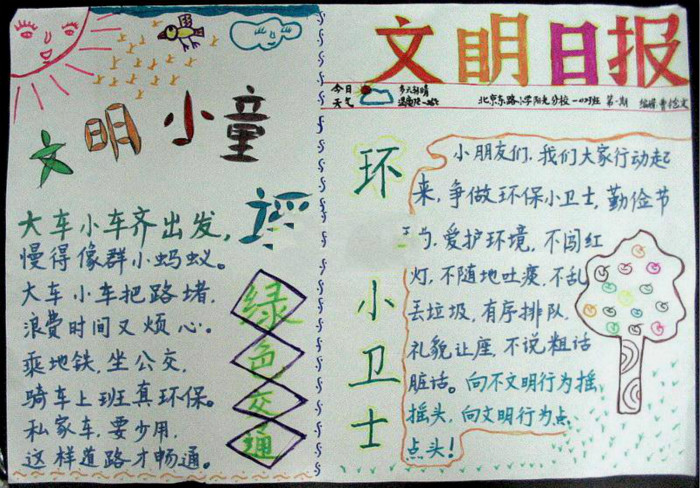 文明小童谣
大车小车齐出发，
慢得像群小蚂蚁。
大车小车把路堵，
浪费时间又烦心。
乘地铁，坐公交，
骑车上班真环保。
私家车，要少用，
这样道路才畅通。
绿色交通
文明日报
今日
天气
多云转晴
北京东路小学阳光分校一（2）班 第一期 编辑：曹
环
小
卫
士
小朋友们，我们大家行动起
来，争做环保小卫士，勤俭节
约，爱护环境，不闯红
灯，不随地吐痰，不乱
丢垃圾，有序排队，
礼貌让座，不说粗话
脏话。向不文明行为摇
摇头，向文明行为点
点头！